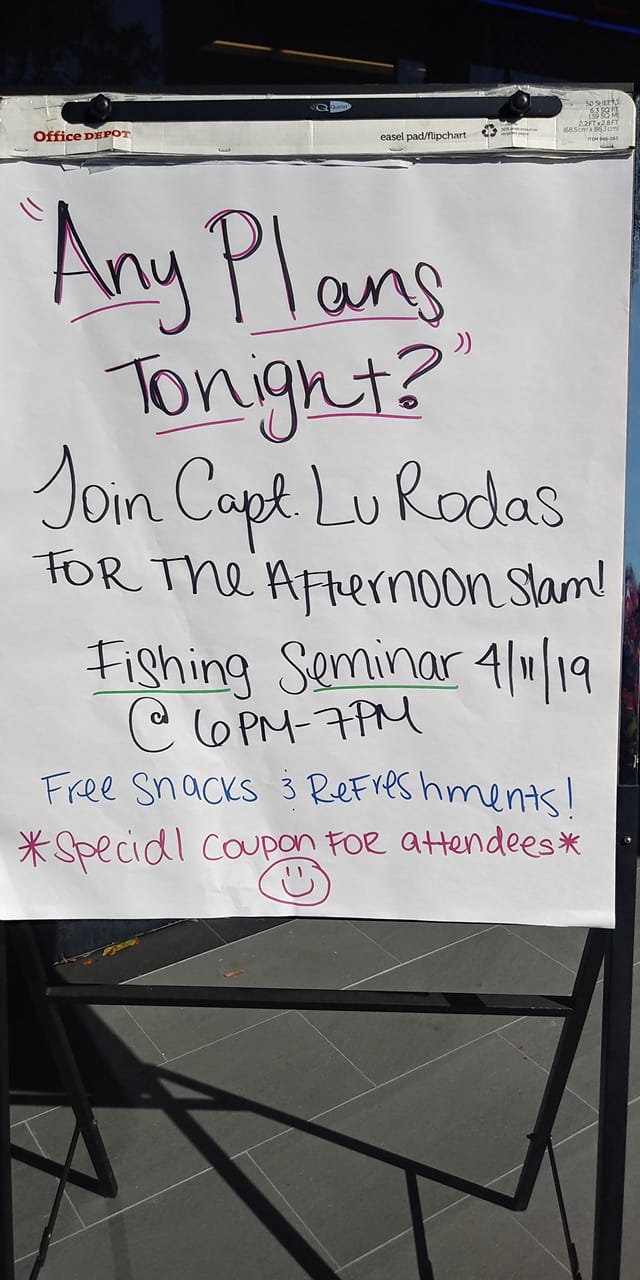 Office DEPOT
easel pad/flipchart
50 SHEETS
6.3 SQ FT
(.59 SQ M)
2.2FT x 2.8 FT
(68.5cm x 86.3 cm)
"Any Plans
Tonight?"
Join Capt. Lu Rodas
FOR The Afternoon Slam!
Fishing Seminar 4/11/19
@ 6PM-7PM
Free Snacks & Refreshments!
*Special Coupon FOR attendees*